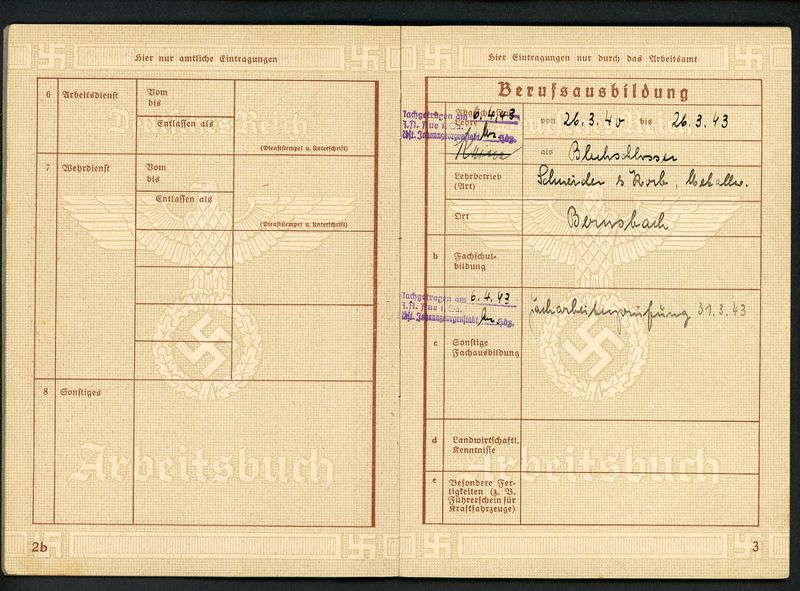 Hier nur amtliche Eintragungen
6 Arbeitsdienst
Vom
bis
Entlassen als
(Dienststempel u. Unterschrift)
7 Wehrdienst
Vom
bis
Entlassen als
(Dienststempel u. Unterschrift)
8 Sonstiges
Deutsches Reich
Arbeitsbuch
2b
Hier Eintragungen nur durch das Arbeitsamt
Berufsausbildung
Nachgetragen am 6.4.43
A.A. Aue i. Sa.
Nbst. Johanngeorgenstadt
Lehre
von 26.3.40 bis 26.3.43
als Blechschlosser
Lehrbetrieb
(Art)
Schneider & Korb,
Ort Bernsbach
b Fachschul-
bildung
Nachgetragen am 6.4.43
A.A. Aue i. Sa.
Nbst. Johanngeorgenstadt
Facharbeiterprüfung 31.3.43
c Sonstige
Fachausbildung
d Landwirtschaftl.
Kenntnisse
e Besondere Fer-
tigkeiten (z. B.
Führerschein für
Kraftfahrzeuge)
Arbeitsbuch
3